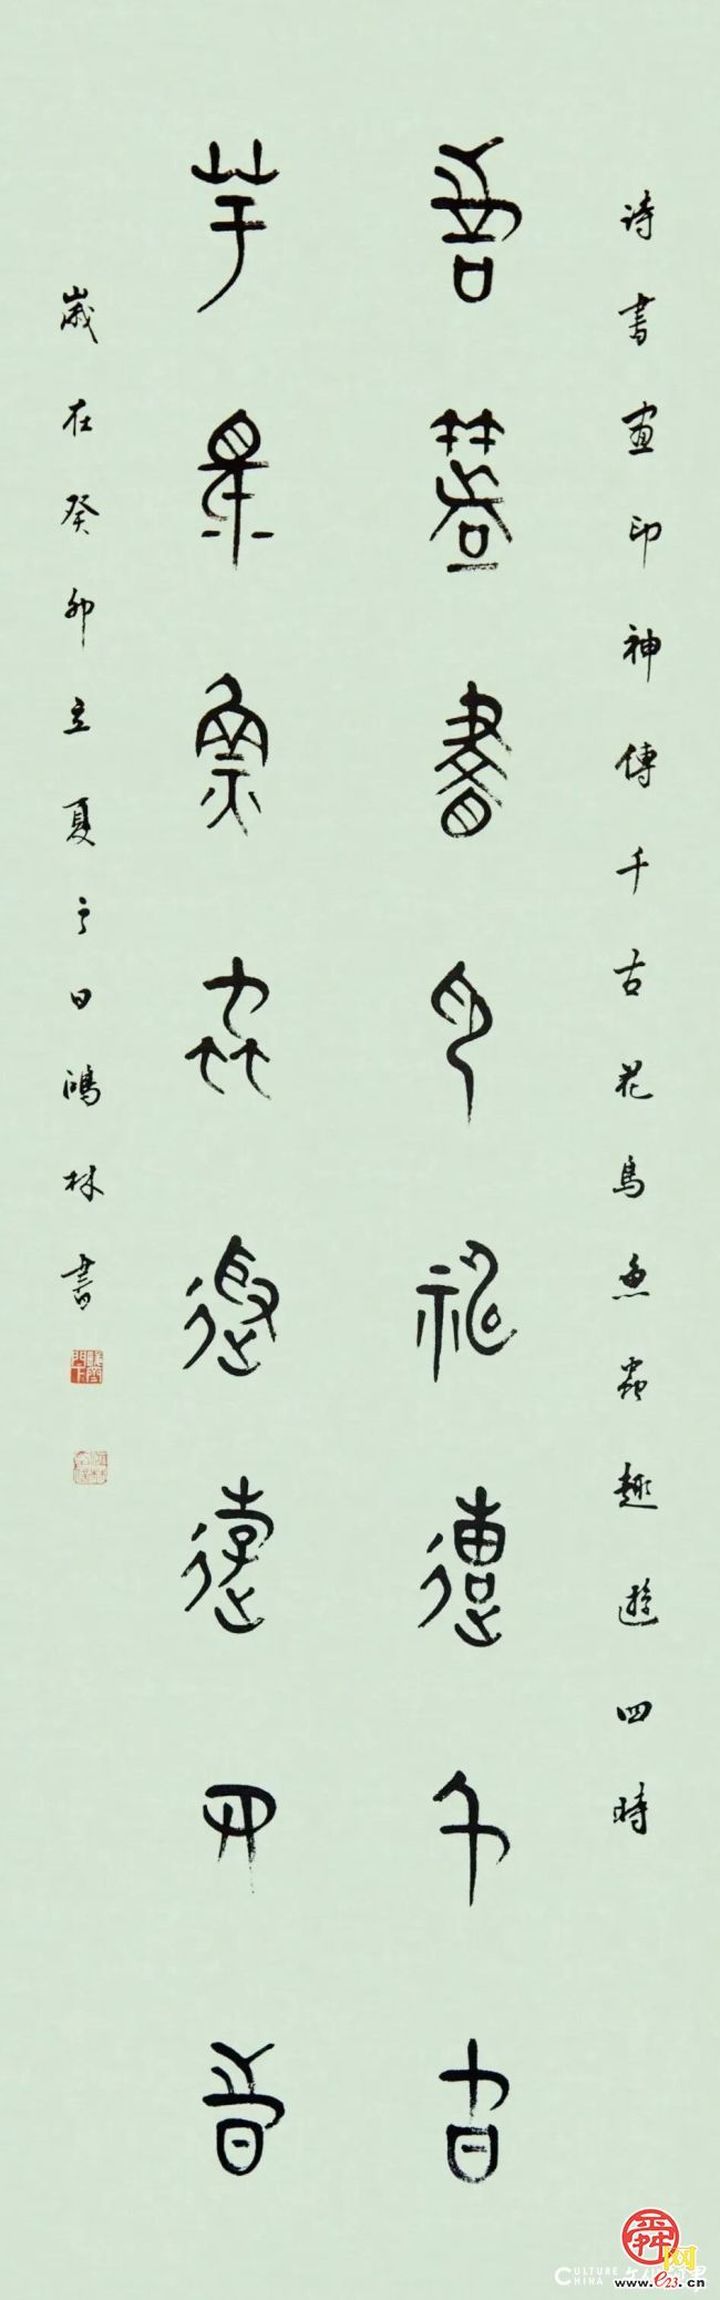 诗書畫印神傳千古花鳥魚蟲趣遊四時
詩書畫印神傳千古
花鳥魚蟲趣遊四時
歲在癸卯立夏之日鴻林書
舜网
CULTURE
CHINA
www.e23.cn